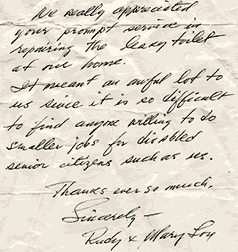 We really appreciated
your prompt service in
repairing the leaky toilet
at our home.
It meant an awful lot to
us since it is so difficult
to find anyone willing to do
smaller jobs for disabled
senior citizens such as us.
Thanks ever so much,
Sincerely –
Rudy & Mary Loy